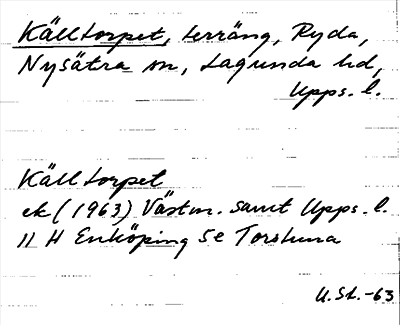 Källtorpet, terräng, Ryda,
Nysätra sn, Lagunda hd,
Upps. l.
Källtorpet
ek (1963) Västm. samt Upps. l.
11 H Enköping 5e Torstuna
U.St.-63